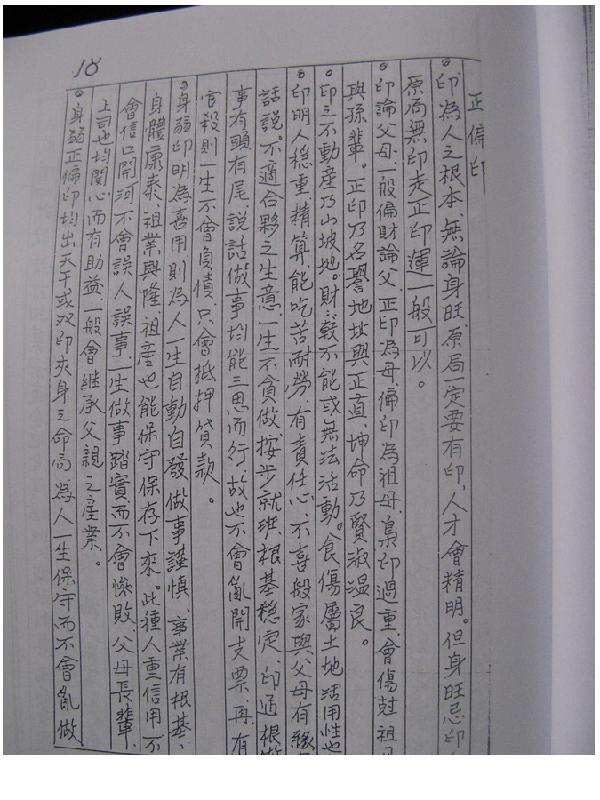 18
正偏印
。印為人之根本，無論身旺，原局一定要有印，人才會精明。但身旺忌印
原局無印走正印運一般可以。
。印論父母，一般偏財論父，正印為母，偏印為祖母，梟印過重，會傷尅祖
與孫輩。正印乃名譽地位與正直，坤命乃賢淑溫良。
。印三不動產乃山坡地。財：較不能或無法活動。食傷屬土地活用性也
。印明人穩重，精算能吃苦耐勞，有責任心，不喜搬家與父母有緣
話說。不適合夥之生意，一生不貪做按步就班，根基穩定，印通根
事有頭有尾，說話做事均能三思而行，故也不會亂開支票，再有
官殺則一生不會負債，只會抵押貸款。
。身弱印明為喜用則為人一生自動自發做事謹慎，事業有根基，
身體康泰，祖業興隆，祖產也能保守保存下來。此種人重信用不
會信口開河不會誤人誤事，一生做事踏實而不會慘敗，父母長輩，
上司也均關心而有助益，一般會繼承父親之產業。
。身弱正偏印均出天干或双印夾身之命局，為人一生保守而不會亂做